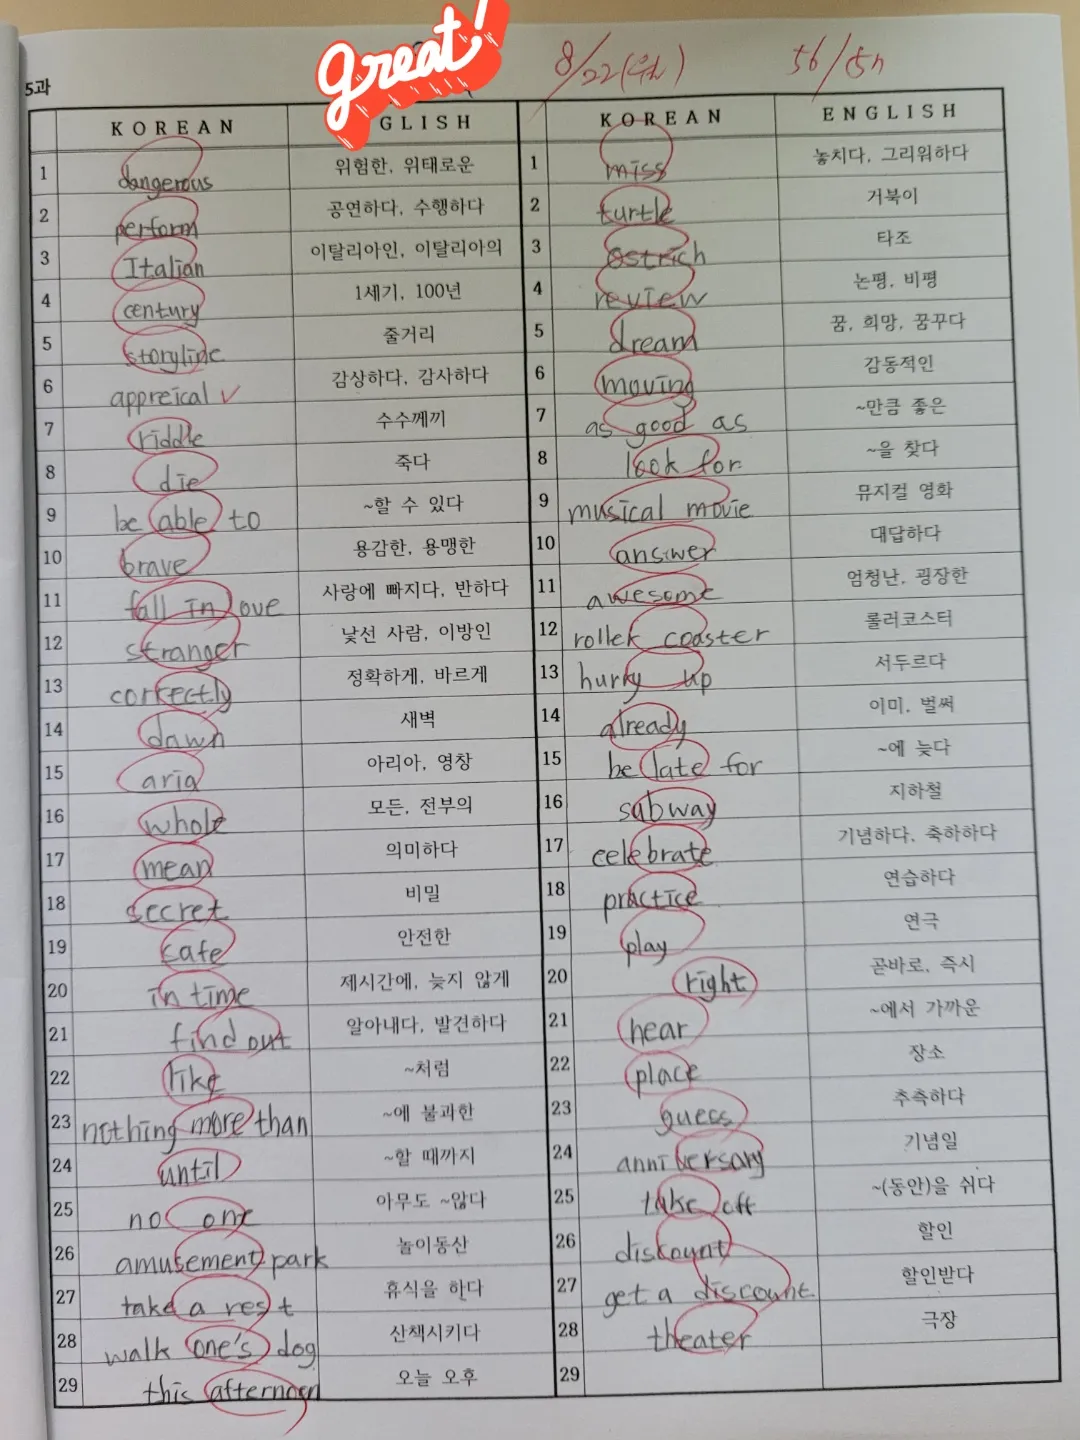 great!
8/22(월) 56/57
5과
KOREAN GLISH KOREAN ENGLISH
1 dangerous 위험한, 위태로운 1 miss 놓치다, 그리워하다
2 perform 공연하다, 수행하다 2 turtle 거북이
3 Italian 이탈리아인, 이탈리아의 3 ostrich 타조
4 century 1세기, 100년 4 review 논평, 비평
5 storyline 줄거리 5 dream 꿈, 희망, 꿈꾸다
6 appreical 감상하다, 감사하다 6 moving 감동적인
7 riddle 수수께끼 7 as good as ~만큼 좋은
8 die 죽다 8 look for ~을 찾다
9 be able to ~할 수 있다 9 musical movie 뮤지컬 영화
10 brave 용감한, 용맹한 10 answer 대답하다
11 fall in love 사랑에 빠지다, 반하다 11 awesome 엄청난, 굉장한
12 stranger 낯선 사람, 이방인 12 roller coaster 롤러코스터
13 correctly 정확하게, 바르게 13 hurry up 서두르다
14 dawn 새벽 14 already 이미, 벌써
15 aria 아리아, 영창 15 be late for ~에 늦다
16 whole 모든, 전부의 16 subway 지하철
17 mean 의미하다 17 celebrate 기념하다, 축하하다
18 secret 비밀 18 practice 연습하다
19 safe 안전한 19 play 연극
20 in time 제시간에, 늦지 않게 20 right 곧바로, 즉시
21 find out 알아내다, 발견하다 21 near ~에서 가까운
22 like ~처럼 22 place 장소
23 nothing more than ~에 불과한 23 guess 추측하다
24 until ~할 때까지 24 anniversary 기념일
25 no one 아무도 ~않다 25 take off ~(동안)을 쉬다
26 amusement park 놀이동산 26 discount 할인
27 take a rest 휴식을 하다 27 get a discount 할인받다
28 walk one's dog 산책시키다 28 theater 극장
29 this afternoon 오늘 오후 29